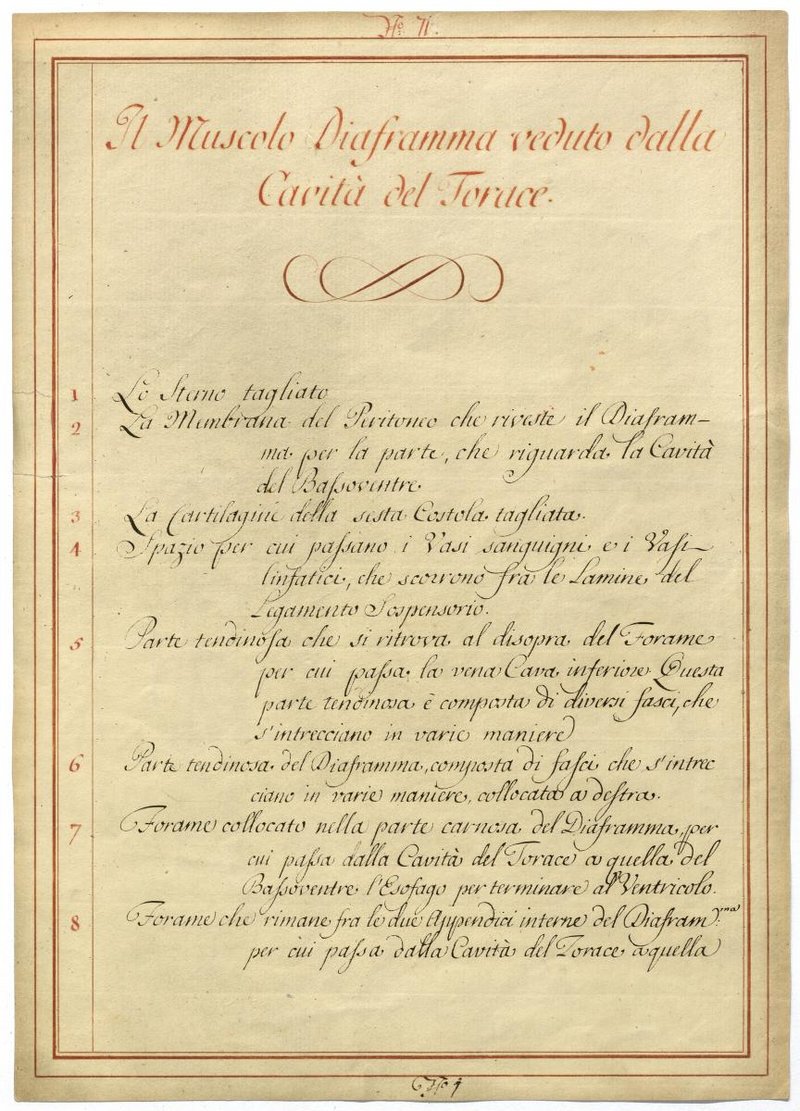 No. 71
Il Muscolo Diaframma veduto dalla
Cavità del Torace.
1 Lo Sterno tagliato
2 La Membrana del Peritoneo che riveste il Diafram-
ma per la parte, che riguarda la Cavità
del Baſsoventre
3 La Cartilagine della sesta Costola tagliata.
4 Spazio per cui paſsano i Vasi sanguigni e i Vasi
linfatici, che scorrono fra le Lamine del
Legamento Sospensorio.
5 Parte tendinosa che si ritrova al disopra del Forame
per cui paſsa la vena Cava inferiore. Questa
parte tendinosa è composta di diversi fasci, che
s'intrecciano in varie maniere
6 Parte tendinosa del Diaframma, composta di faſci che s'intrec
ciano in varie maniere, collocata a deſtra.
7 Forame collocato nella parte carnosa del Diaframma, per
cui paſsa dalla Cavità del Torace a quella del
Baſsoventre l'Esofago per terminare al Ventricolo.
8 Forame che rimane fra le due Appendici interne del Diafram:ma
per cui paſsa dalla Cavità del Torace a quella